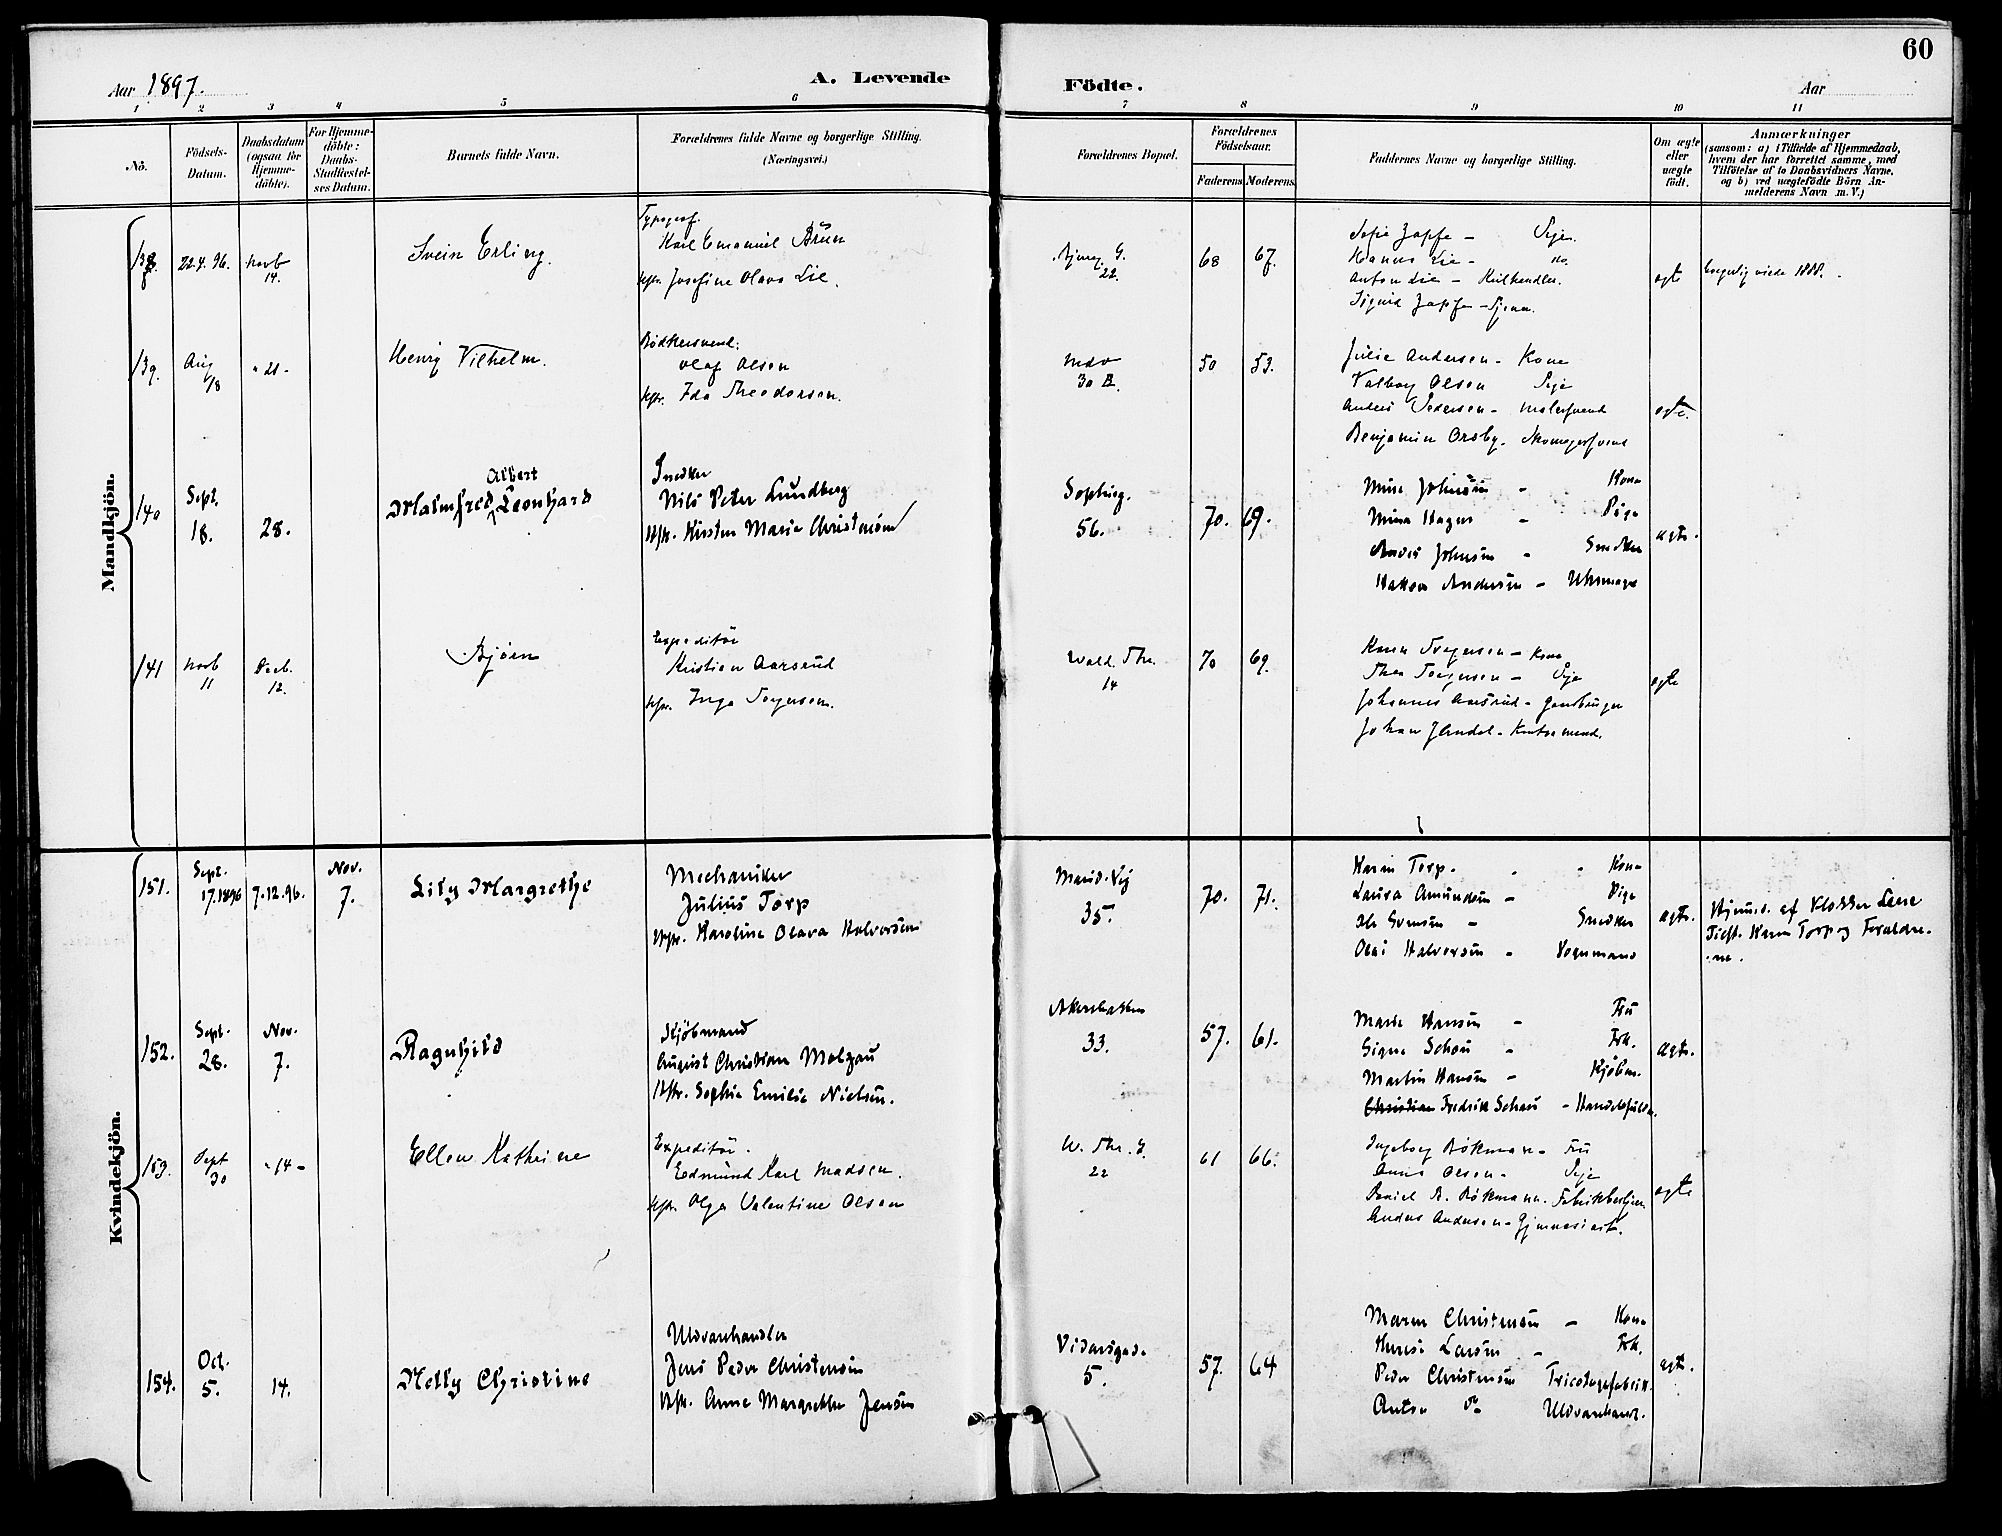 60
Aar 1897.
A. Levende Födte.
Aar
1 2 3 4 5 6 7 8 9 10 11
No.
Födsels-Datum.
Daabsdatum (ogsaa for Hjemmedöbte).
For Hjemmedöbte: Daabs-Stadfæstelses Datum.
Barnets fulde Navn.
Forældrenes fulde Navne og borgerlige Stilling. (Næringsvei.)
Forældrenes Bopæl.
Forældrenes Födselsaar.
Faderens Moderens
Faddernes Navne og borgerlige Stilling.
Om ægte eller uægte födt.
Anmærkninger
(saasom: a) i Tilfælde af Hjemmedaab, hvem der har forrettet samme, med Tilföielse af to Daabsvidners Navne, og b) ved uægtefödte Börn Anmelderens Navn m. V.)
Mandkjön.
138 22.4.96. Novb 14.
Svein Erling.
Typograf.
Karl Emanuel Bruun
Hstr. Josefine Olava Lie.
22. 68 67.
Sofie Zapfe - Pige.
Hanna Lie - do.
Anton Lie - Kulhandler.
Sigurd Zapfe -
ægte
borgerlig viede 1888.
139. Aug 18 " 21 -
Henry Vilhelm.
Bödkersvend.
Olaf Olsen
Hstr. Ida Theodorsen.
30 B. 50 53.
Julie Andersen - Kone
Valborg Olsen Pige
Anders Pedersen - Malersvend
Benjamin Orsby. Skomagersvend
ægte.
140 Sept. 18. 28.
Malmfred Albert Leonhard
Snedker
Nils Peter Lundberg
Hstr. Kirsten Marie Christensen
Sophieg. 56. 70. 69.
Mina Johnsen - Kone
Mina Hagen - Pige
Anders Johnsen - Snedker
Hakon Andersen - Uhrmager
ægte.
141 Novb 11 Decb. 12.
Bjørn
Expeditör
Kristian Aarsrud
Hstr. Inga Torgersen.
Wald. Thr. 14 70 69.
Karen Torgersen - Kone
Thea Torgersen - Pige
Johannes Aarsrud - Gaardbruger
Johan - Kontormand.
ægte
Kvindekjön.
151. Sept. 17.1896 7.12.96. Nov. 7.
Lily Margrethe
Mechaniker
Julius Torp
Hstr. Karoline Olava Halvorsen
Marid. Vej 35. 70. 71.
Karen Torp - Kone
Laura Amundsen - Pige
Ole Svensen - Snedker
Olai Halvorsen - Vognmand
ægte.
Hjemmed. af Klokker Lane
Tilst. Karen Torp og Forældre-
ne.
152. Sept. 28. Nov. 7.
Ragnhild
Kjöbmand
August Christian Molzau
Hstr. Sophie Emilie Nielsen.
Akersbakken 33. 57. 61.
Marie Hansen - Fru
Signe Schou - Frk.
Martin Hansen - Kjöbm.
Christian Fredrik Schou - Handelsfuldm.
ægte.
153. Sept 30 " 14 -
Ellen Kathrine
Expeditör.
Edmund Karl Madsen.
Hstr. Olga Valentine Olsen
W. Thr. G. 22 61 66.
Ingeborg Bökmann - Fru
Anna Olsen - Pige
Daniel B. Bökmann. Fabrikbestyrer
Anders Andersen - Gymnasiast.
ægte
154. Oct. 5. 14.
Nelly Christine
Uldvarehandler
Jens Peder Christensen
Hstr. Anne Margrethe Jensen
Vidarsgade 5. 57. 64
Maren Christensen - Kone
Larsen - Frk.
Peder Christensen Tricotagefabrik.
Anton do Uldvarehand.
ægte.